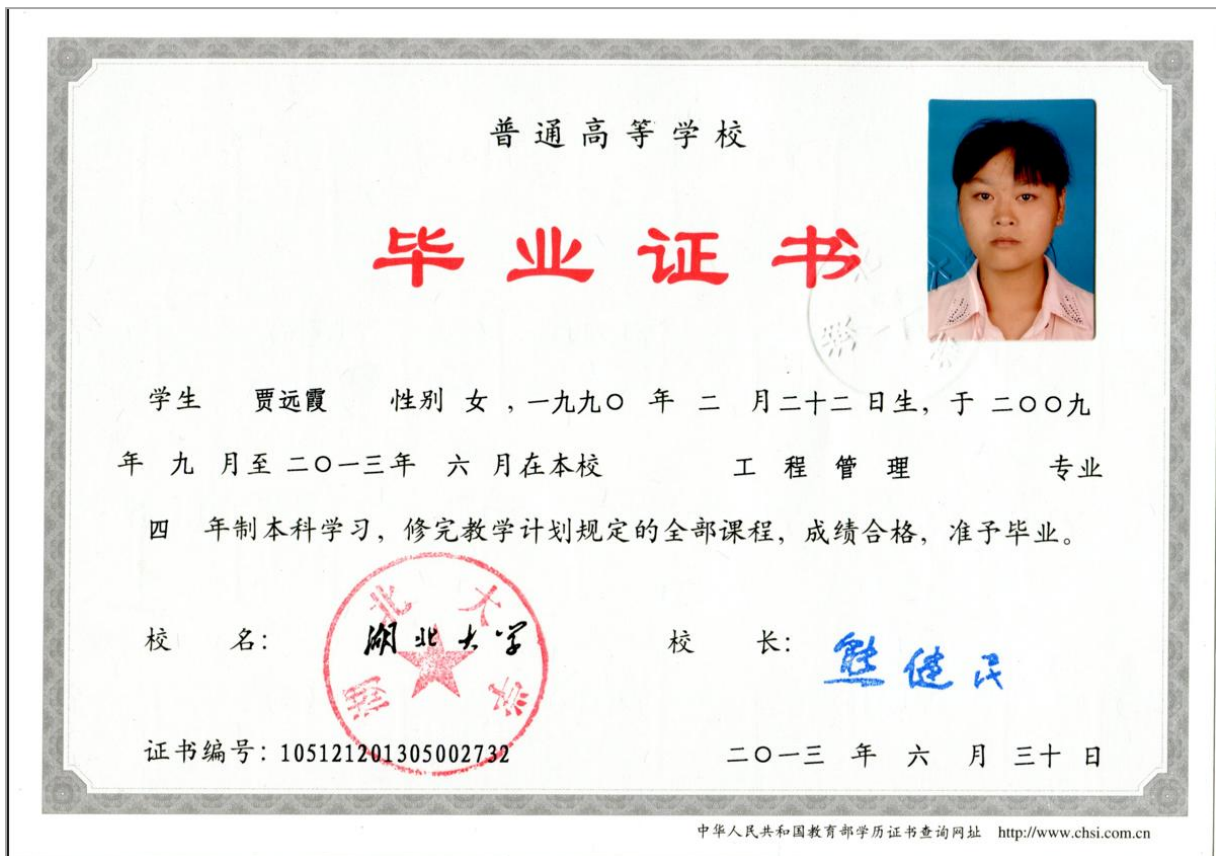 普通高等学校
毕业证书
学生 贾远霞 性别 女 ,一九九〇 年 二 月二十二 日生, 于 二〇〇九
年 九 月至 二〇一三年 六 月在本校 工 程 管 理 专业
四 年制本科学习, 修完教学计划规定的全部课程, 成绩合格, 准予毕业。
校 名: 湖北大学
湖北大学
校 长: 熊健民
证书编号: 105121201305002732
二〇一三 年 六 月 三十 日
中华人民共和国教育部学历证书查询网址 http://www.chsi.com.cn